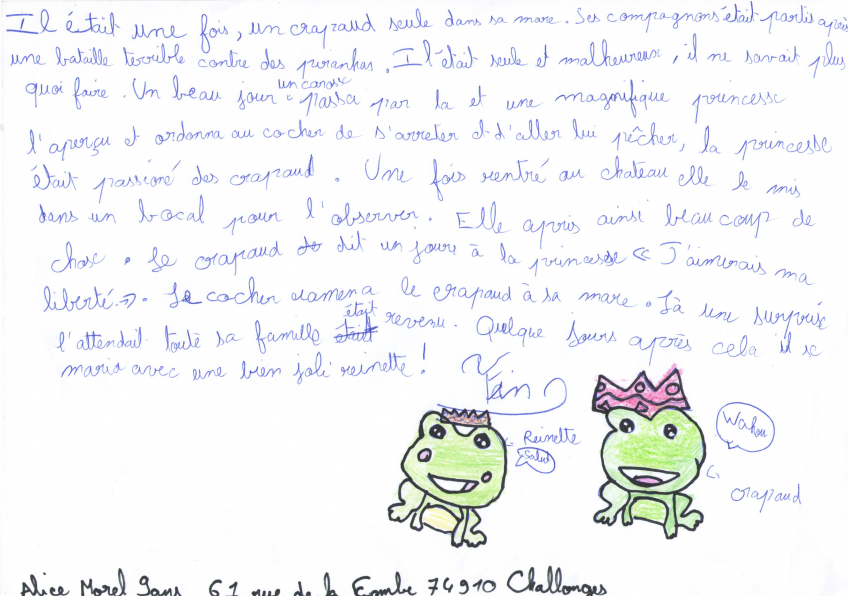 Il était une fois, un crapaud seule dans sa mare. Ses compagnons était partis après
une bataille terrible contre des piranhas. Il était seule et malheureux, il ne savait plus
quoi faire. Un beau jour un carosse passa par la et une magnifique princesse
l'aperçu et ordonna au cocher de s'arreter et d'aller lui pêcher, la princesse
était passioné des crapaud. Une fois rentré au chateau elle le mis
dans un bocal pour l'observer. Elle appris ainsi beaucoup de
chose. Le crapaud dit un joure à la princesse « J'aimerais ma
liberté ». Le cocher ramena le crapaud à sa mare. Là une surprise
l'attendait toute sa famille était revenu. Quelque jours après cela il se
maria avec une bien joli reinette !
Fin
Reinette
Salut
Wahou
crapaud
Alice Morel 9ans 61 rue de la 74910 Challonges